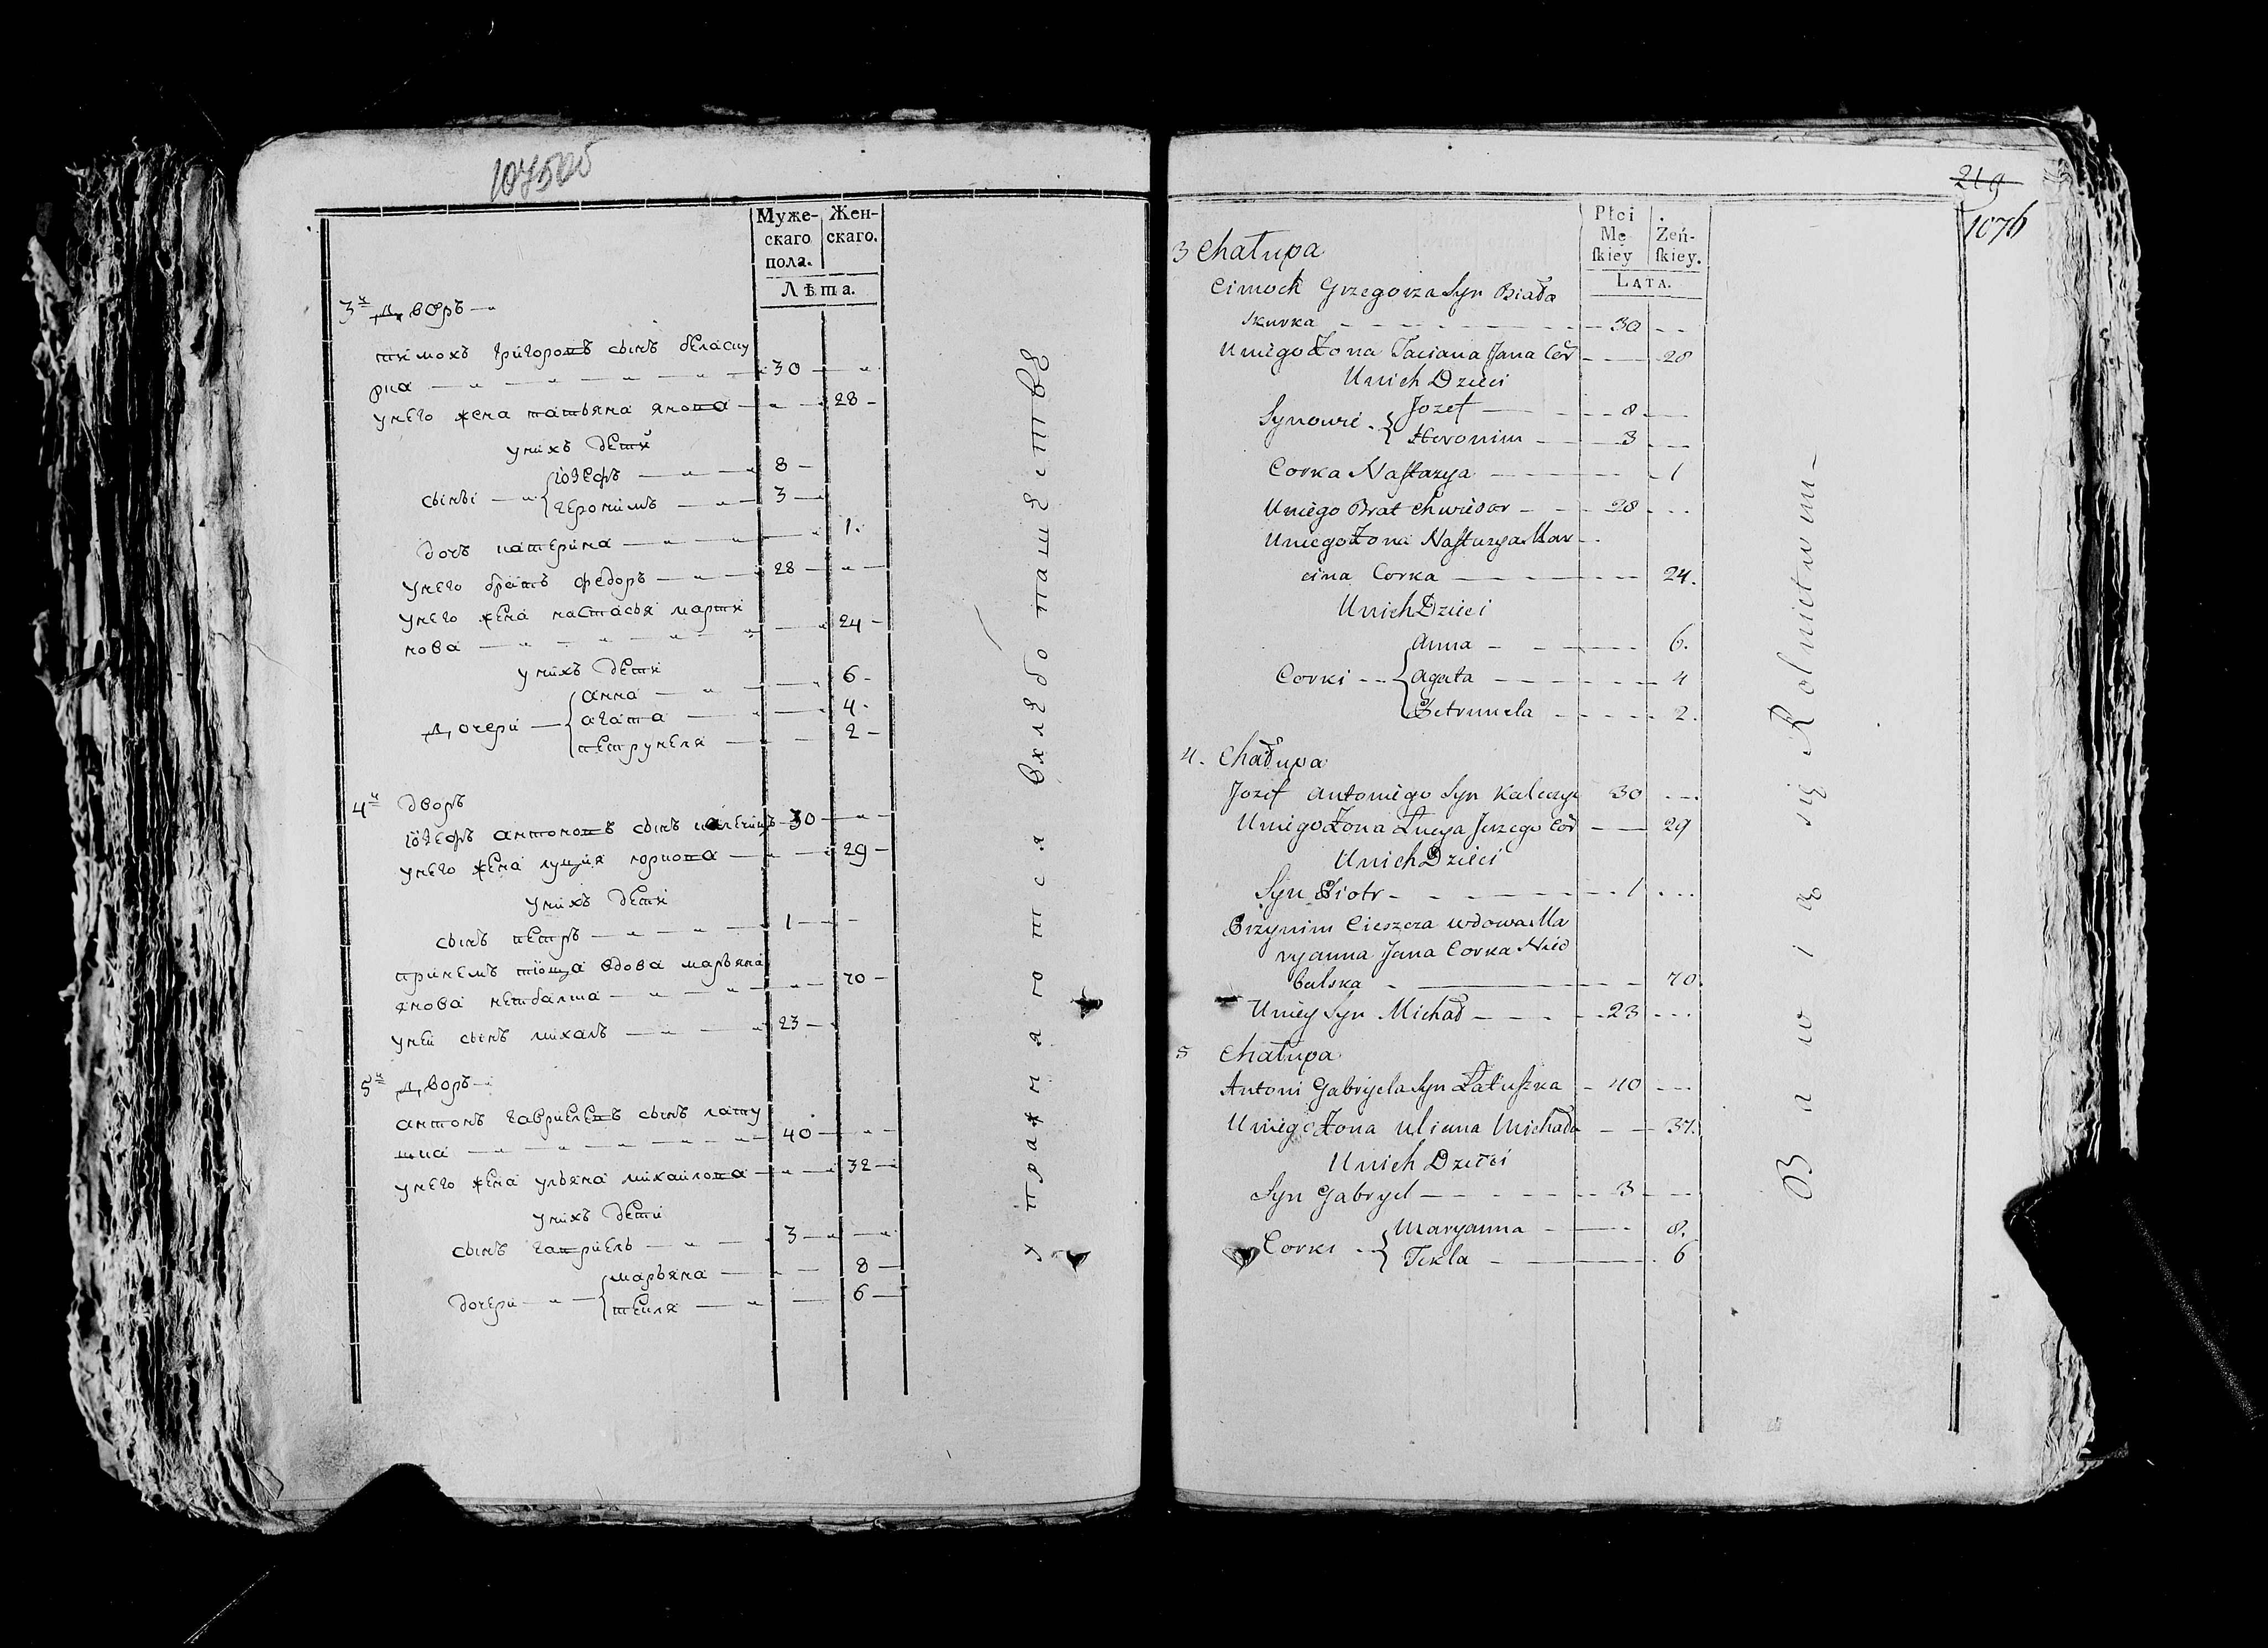 1075об
Муже-
скаго
пола.
Жен-
скаго.
Лѣта.
3й дворъ
тимохъ григоровъ сынъ беласку
рка 30
унего жена татьяна янова 28
унихъ дети
сыны
іозефъ 8
геронимъ 3
дочь катерина 1
унего братъ федоръ 28
унего жена настасья марти
нова 24
унихъ дети
дочери
анна 6
агата 4
петрунеля 2
4й дворъ
іозефъ антоновъ сынъ 30
унего жена луция юркова 29
унихъ дети
сынъ петръ 1
принемъ тіоща вдова марьяна
янова 70
уней сынъ михалъ 23
5й дворъ
антонъ гавриелевъ сынъ лату
шка 40
унего жена ульяна михайлова 32
унихъ дети
сынъ гавриель 3
дочери
марьяна 8
текля 6
упражняются вхлебопашестве
219
1076
Płci
Mę-
ſkiey
Żeń-
ſkiey.
Lata.
3 Chałupa
Cimoch Grzegorza Syn Biała
skurka 30
Uniego Żona Taciana Jana Cór 28
Unich Dzieci
Synowie
Jozef 8
Heronim 3
Corka Nastazya 1
Uniego Brat Chwiedor 28
Uniego Żona Nastazya Mar
cina Corka 24.
Unich Dzieci
Corki
Anna 6.
Agata 4
Petrunela 2.
4. Chałupa
Jozef Antoniego Syn Kaleczyc 30
Uniego Żona Łucya Jerzego Cór 29
Unich Dzieci
Syn Piotr 1
Przynim Cieszcza wdowa Ma
ryanna Jana Corka Nied
balska 70.
Uniey Syn Michał 23
5 Chałupa
Antoni Gabryela Syn Łatuszka 40
Uniego Żona Uliana Michała 37.
Unich Dzieci
Syn Gabryel 3
Corki
Maryanna 8.
Tekla 6
Bawią się Rolnictwem